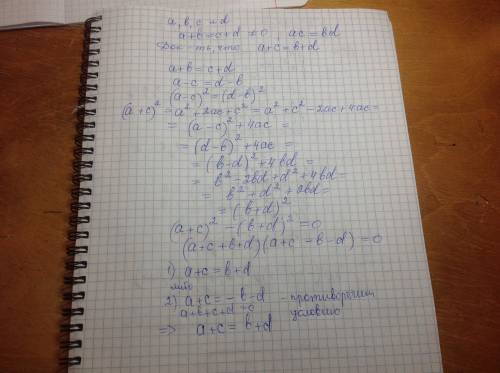 a, b, c и d
a+b=c+d ≠ 0, ac = bd
Док-ть, что a+c = b+d
a+b = c+d
a-c = d-b
(a-c)² = (d-b)²
(a+c)² = a² + 2ac + c² = a² + c² - 2ac + 4ac =
= (a-c)² + 4ac =
= (d-b)² + 4ac =
= (b-d)² + 4bd =
= b² - 2bd + d² + 4bd =
= b² + d² + 2bd =
= (b+d)²
(a+c)² - (b+d)² = 0
(a+c+b+d)(a+c-b-d) = 0
1) a+c = b+d
либо
2) a+c = -b-d - противоречит
a+b+c+d=0 условию
=> a+c = b+d